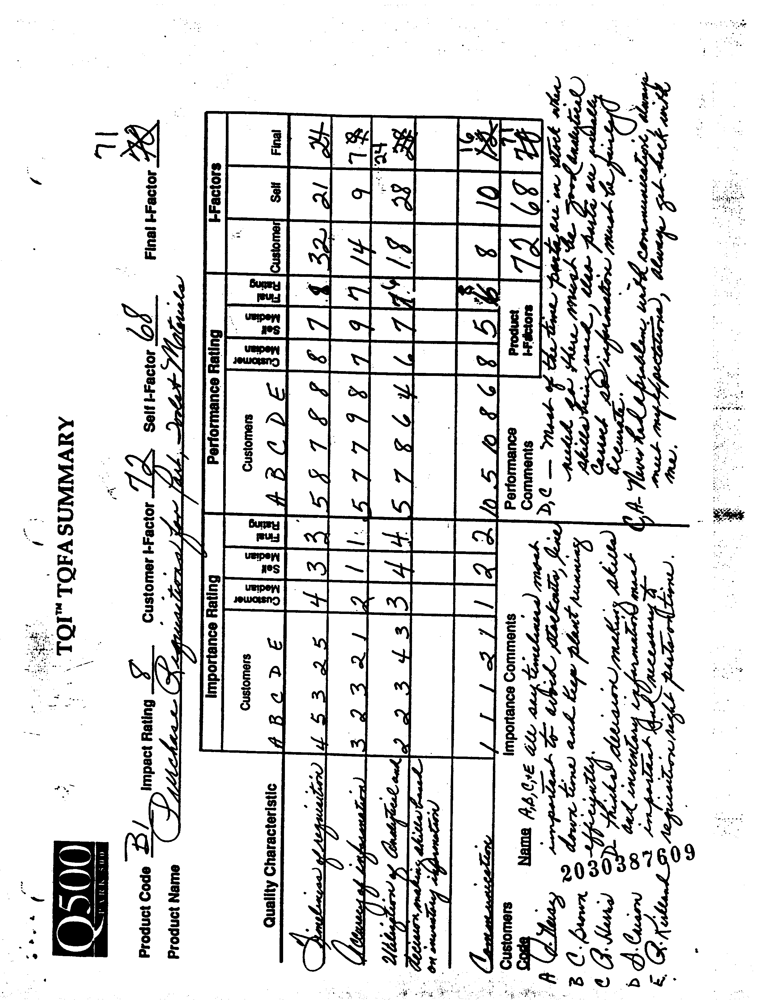 Q500
TQI™ TQFA SUMMARY
71
Product Code B1 Impact Rating 8 Customer I-Factor 72 Self I-Factor 68 Final I-Factor 70
Product Name Purchase Requisitions for Part, Materials
Importance Rating Performance Rating I-Factors
Quality Characteristic Customers Customer Median Self Median Final Rating Customers Customer Median Self Median Final Rating Customer Self Final
A B C D E A B C D E
Timeliness of requisition 4 5 3 2 5 4 3 3 5 8 7 8 8 8 7 8 32 21 24
Accuracy of information 3 2 3 2 1 2 1 1 5 7 7 9 8 7 9 7 14 9 7
Utilization of Analytical and decision making skills based on inventory information 2 2 3 4 3 3 4 4 5 7 8 6 4 6 7 6 18 28 24
Communication 1 1 1 2 1 1 2 2 10 5 10 8 6 8 5 8 8 10 16
Product I-Factors 72 68 71
Customers
Code Name
A
B C. Brown
C
D
E
Importance Comments
A,D,C,+E all say timeliness most
important to avoid stockouts, line
down time and keep plant running
efficiently.
D thinks decision making skills
and inventory information most
important and necessary to
requisition right parts on time.
Performance Comments
D,C — Most of the time parts are in stock when
needed so there must be good analytical
skills being used, also parts are usually
correct so information must be fairly
accurate.
C,A- Never had a problem with communication, always
meet my expectations, always get back with
me.
2030387609